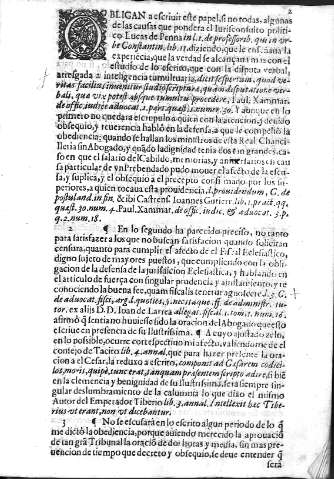 2
OBLIGAN a escriuir este papel, si no todas, algunas
de las causas que pondera el Iurisconsulto politico
Lucas de Penna in l. 1. de professorib. qui in vrbe
Constantin. lib. 11. diziendo, que le enseñaua la
experiecia, que la verdad se alcançaua mas con el
estudio de lo escrito, que con la disputa verbal,
arresgada a inteligencia tumultuaria, dicit se expertum, quod veritas
facilius inuenitur studio scripturæ, quàm disputatione verbali,
quæ vt potest absque tumultu procedere, Paul. Xammar.
de offic. iudic. & aduocat. 1. part. quæst. 15. num. 30. Y aunque en lo
primero no quedara escrupulo a quien con la atencion, y deuido
obsequio, y reuerencia habló en la defensa, a que le compelió la
obediencia; quando se hallan los ministros de esta Real Chancilleria
sin Abogado, y quado la dignidad tenia dos en grandes, caso
en que el salario del Cabildo, memorias, y
causa particular de vn Prebendado pudo mouer el afecto de la escusa,
y suplica, y el obsequio al precepto consumarlo por los superiores,
a quien tocaua esta prouidencia, l. prouidendum, C. de
postuland. in fin. & ibi Castrens. Ioannes Gutierr. lib. 1. pract. qq.
quæst. 30. num. 4. Paul. Xammar. de offic. iudic. & aduocat. 3. p.
q. 2. num. 18.
2 ¶ En lo segundo ha parecido preciso, no tanto
para satisfazer a los que no buscan satisfacion quando solicitan
censura, quanto para cumplir el afecto de el Fiscal Eclesiastico,
digno sujeto de mayores puestos, que cumpliendo con la obligacion
de la defensa de la jurisdicion Eclesiastica, y hablando en
el articulo de fuerça con singular prudencia, y ajustamiento, y reconociendo
la buena fee, quam fiscalis tenetur agnoscere, l. 3. C.
de aduocat. fisci, arg. l. quoties,
ex alijs D. D. Ioan de Larrea allegat. fiscal. 1. tom. 1. num. 16.
afirmó q sentia no huuiesse sido la oracion del Abogado que esto
escriue en presencia de su Ilustrissima. ¶ A cuyo ajustado zelo,
en lo possible, ocurre con respectiuo mi afecto, valiendome de el
consejo de Tacito lib. 4. annal. que para hazer presente la oracion
a el Cesar, la reduxo a escrito, componit ad Cæsarem codicillos,
moris quippe tunc erat,
en la clemencia y benignidad de su Ilustrissima, sera siempre singular
deslumbramiento de la calumnia lo que dixo el mismo
Autor del Emperador Tiberio lib. 3. annal. Intellexit hæc Tiberius
vt erant, non vt dicebantur.
3 ¶ No se escusará en lo escrito algun periodo de lo q
me dictó la obediencia, porque auiendo merecido la aprouació
de tan grã Tribunal la oració de dos horas y media, sin mas preuencion
de tiempo que decreto y obsequio, se deue entender q
será